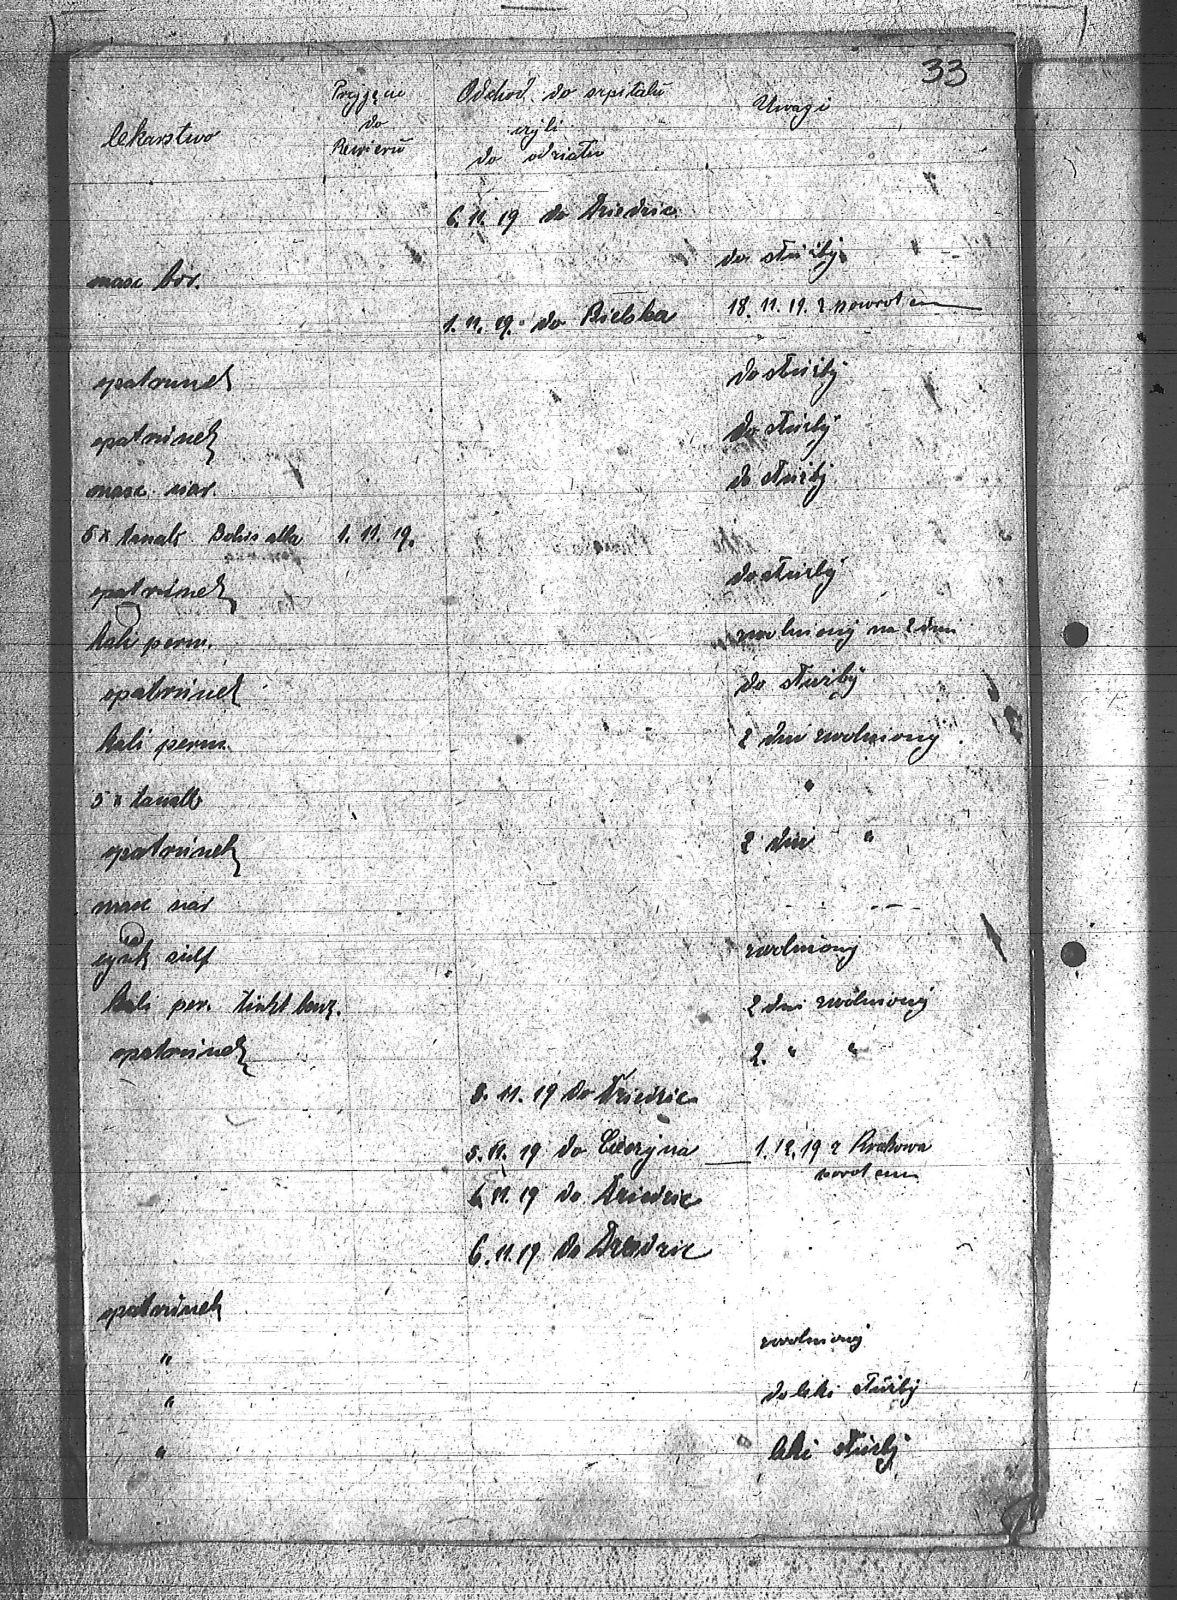 33
lekarstwo
Przyjęcie
do
Rewieru
Odchod do szpitalu
czyli
do odziału
Uwagi
6. 11. 19 do Dziedzic
do służby
masc bor.
1. 11. 19. do Bielska 18. 11. 19. z powrotem
opatrunek do służby
opatrunek do służby
masc siar. do służby
5 x tanalb Bolus alba 1. 11. 19.
opatrunek do służby
kali perm. zwolniony na 2 dni
opatrunek do służby
kali perm. 2 dni zwolniony
5 x tanalb "
opatrunek 2 dni "
masc siar
cynk sulf zwolniony
kali per. tinkt benz. 2 dni zwolniony
opatrunek 2. " "
3. 11. 19 do Dziedzic
5. 11. 19 do Cieszyna 1. 12. 19 z Krakowa
powrotem
6. 11. 19 do Dziedzic
6. 11. 19. do Dziedzic
opatrunek
" zwolniony
" do leki służby
" leki służby